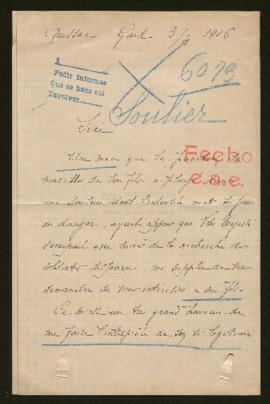 Quissac Gard 3/ 1916
A
Pedir Informes
Que se hace así
Devolver
6073
Soulier
Sire
Fecho
e.a.e.
Une mère que la
nouvelle de son fils a plongé dans
une douleur dont l'intensité met ses jours
en danger, ayant appris que Votre Majesté
s'occupait avec succès de la recherche de
soldats disparus, me supplie de vous
demander de vous intéresser a son fils.
C'est un très grand honneur de
me faire l'interprète de